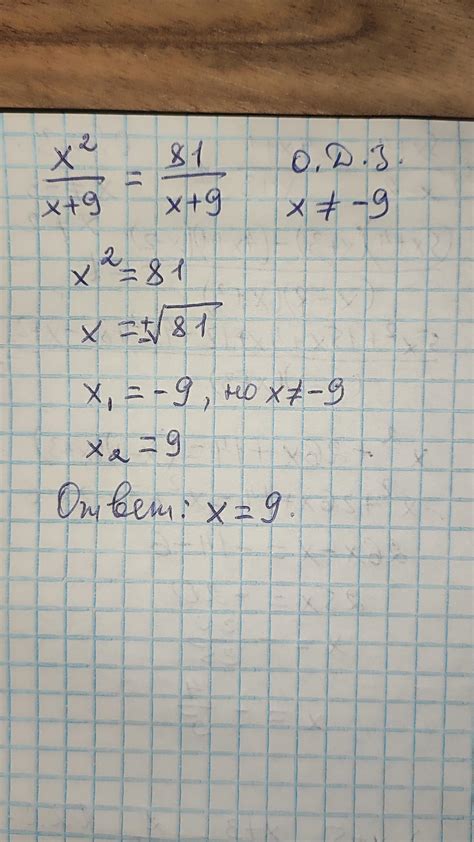 x²/x+9 = 81/x+9 О.Д.З.
x ≠ -9
x² = 81
x = ±√81
x₁ = -9, но x ≠ -9
x₂ = 9
Ответ: x = 9.